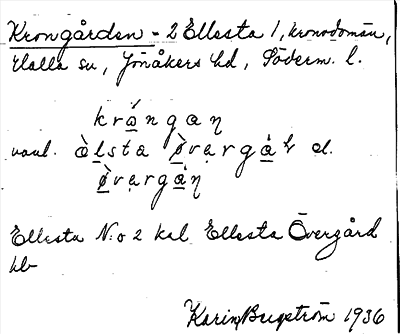 Krongården - 2 Ellesta 1, kronodomän,
Halla sn, Jönåkers hd, Söderm. l.
krángaɳ
vanl. àlsta øvargáɖ el.
øvargáɳ
Ellesta No 2 kal. Ellesta Övergård
hb
Karin Bergström 1936